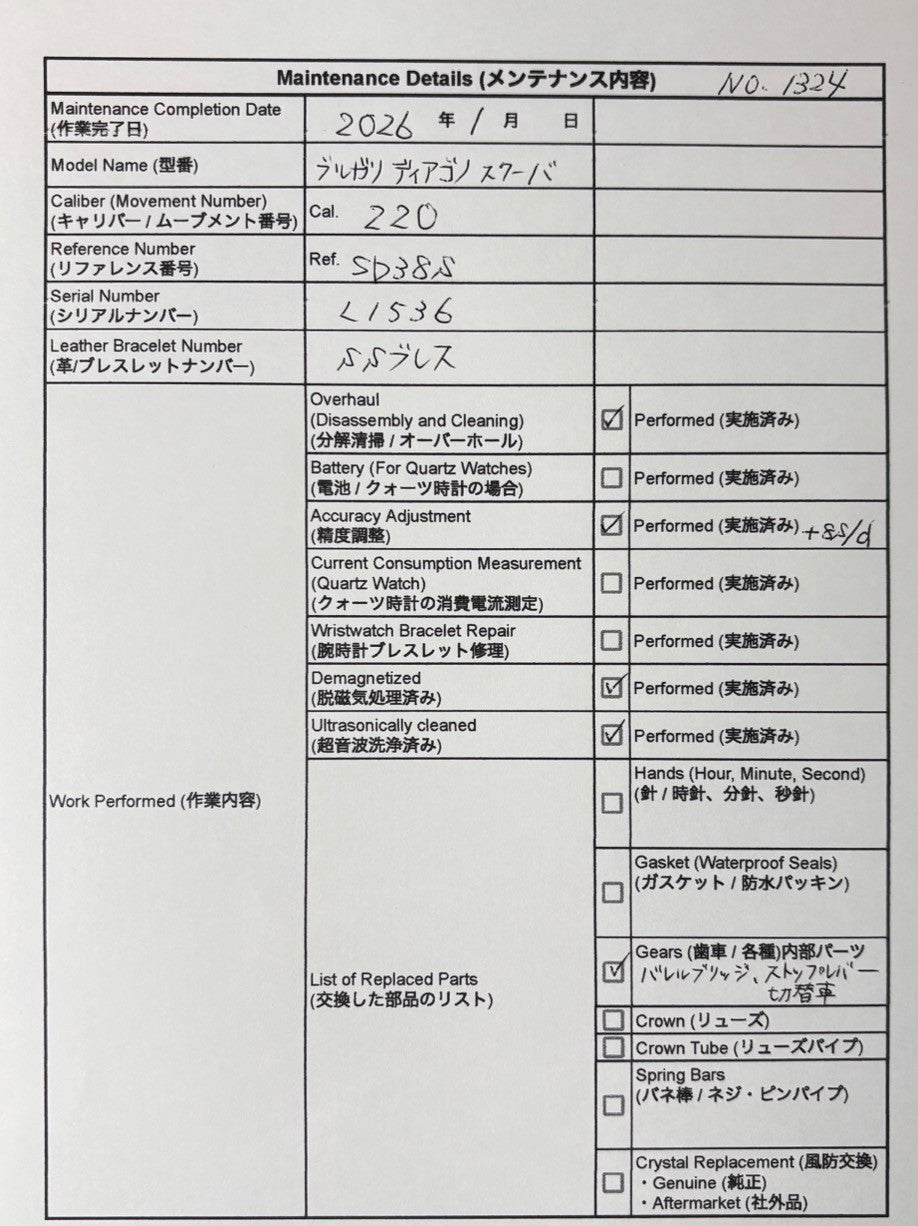 Maintenance Details (メンテナンス内容) NO. 1324
Maintenance Completion Date
(作業完了日)
2026 年 1 月 日
Model Name (型番)
ブルガリ ディアゴノ スクーバ
Caliber (Movement Number)
(キャリバー / ムーブメント番号)
Cal. 220
Reference Number
(リファレンス番号)
Ref. SD38S
Serial Number
(シリアルナンバー)
L1536
Leather Bracelet Number
(革/ブレスレットナンバー)
SSブレス
Work Performed (作業内容)
Overhaul
(Disassembly and Cleaning)
(分解清掃 / オーバーホール)
Performed (実施済み)
Battery (For Quartz Watches)
(電池 / クォーツ時計の場合)
Performed (実施済み)
Accuracy Adjustment
(精度調整)
Performed (実施済み) +8S/d
Current Consumption Measurement
(Quartz Watch)
(クォーツ時計の消費電流測定)
Performed (実施済み)
Wristwatch Bracelet Repair
(腕時計ブレスレット修理)
Performed (実施済み)
Demagnetized
(脱磁気処理済み)
Performed (実施済み)
Ultrasonically cleaned
(超音波洗浄済み)
Performed (実施済み)
List of Replaced Parts
(交換した部品のリスト)
Hands (Hour, Minute, Second)
(針 / 時針、分針、秒針)
Gasket (Waterproof Seals)
(ガスケット / 防水パッキン)
Gears (歯車 / 各種)内部パーツ
バレルブリッジ、ストップレバー
切替車
Crown (リューズ)
Crown Tube (リューズパイプ)
Spring Bars
(バネ棒 / ネジ・ピンパイプ)
Crystal Replacement (風防交換)
・Genuine (純正)
・Aftermarket (社外品)